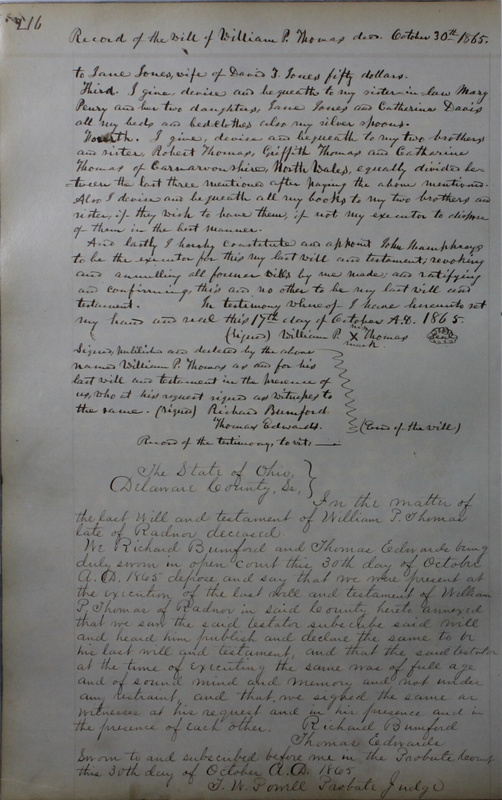 216
Record of the Will of William P. Thomas decd. October 30th 1865.
to Jane Jones, wife of David T. Jones fifty dollars.
Third. I give, devise and bequeath to my sister-in-law Mary
Penry and her two daughters, Jane Jones and Catherine Davis
all my beds and bedclothes also my silver spoons.
Fourth. I give, devise and bequeath to my two brothers
and sister, Robert Thomas, Griffith Thomas and Catherine
Thomas of Carnarvonshire, North Wales, equally divided be-
tween the last three mentioned after paying the above mentioned.
Also I devise and bequeath all my books to my two brothers and
sister, if they wish to have them, if not my executor to dispose
of them in the best manner.
And lastly I hereby constitute and appoint John Humphreys
to be the executor for this my last will and testament, revoking
and annulling all former wills by me made; and ratifying
and confirming this and no other to be my last will and
testament. In testimony whereof I have hereunto set
my hand and seal this 17th day of October A.D. 1865.
(Signed) William P. his X mark Thomas Seal
Signed, published and declared by the above
name William P. Thomas as and for his
last will and testament in the presence of
us, who at his request signed as witnesses to
the same. (signed) Richard Bumford
Thomas Edwards. (End of the will)
Record of the testimony, to wit:
The State of Ohio,
Delaware County, Ss,
In the matter of
the last Will and testament of William P. Thomas
late of Radnor deceased
We Richard Bumford and Thomas Edwards being
duly sworn in open Court this 30th day of October
A.D. 1865 depose and say that we were present at
the execution of the last will and testament of William
P. Thomas of Radnor in said County hereto annexed
that we saw the said testator subscribe said will
and heard him publish and declare the same to be
his last will and testament, and that the said testator
at the time of executing the same was of full age
and of sound mind and memory and not under
any restraint, and that we signed the same as
witnesses at his request and in his presence and in
the presence of each other. Richard Bumford
Thomas Edwards
Sworn to and subscribed before me in the Probate Court
this 30th day of October A.D. 1865
T. W. Powell Probate Judge